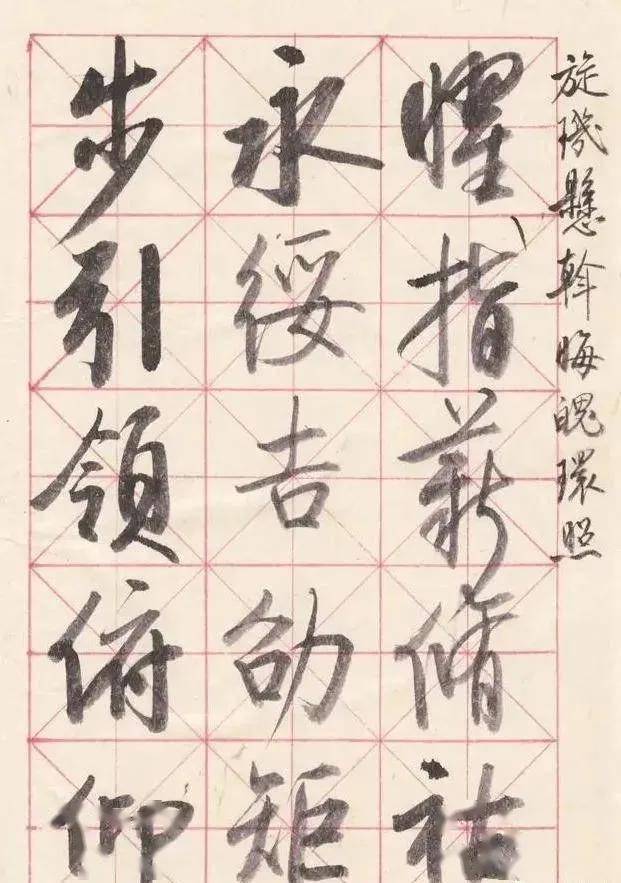 旋璣懸斡晦魄環照
燿指薪脩祜
永綏吉劭矩
步引領俯仰